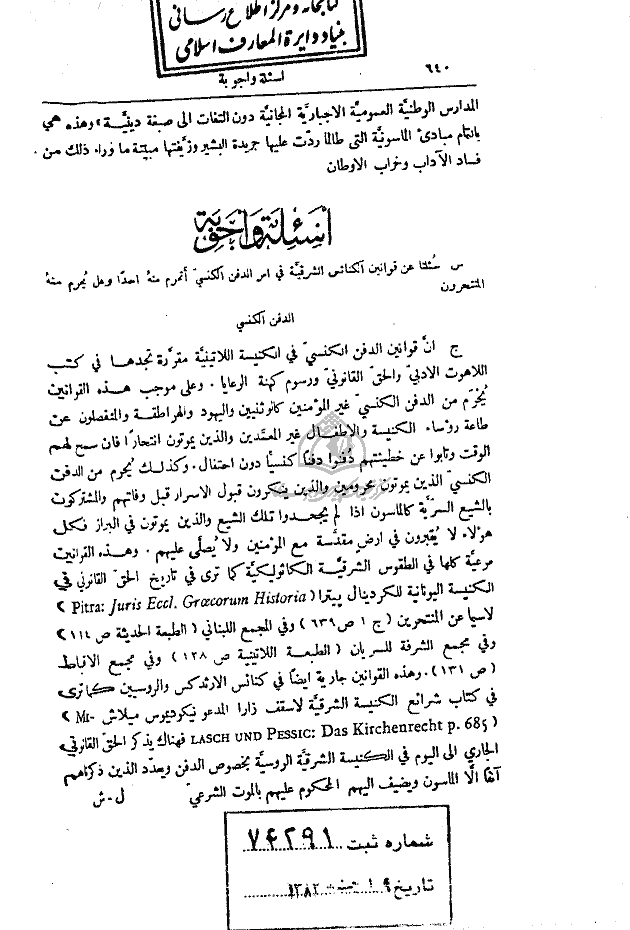 كتابخانه و مركز اطلاع رسانى
بنياد دايرة المعارف اسلامى
اسئلة واجوبة
٦٤٠
المدارس الوطنيَّة العموميَّة الاجباريَّة المجانيَّة دون التفات الى صبغة دينيَّة» وهذه هي
بالتمام مبادئ الماسونيَّة التي طالما ردَّت عليها جريدة البشير وزيَّفتها مبيّنة ما وراء ذلك من
فساد الآداب وخراب الاوطان
اسئلة واجوبة
س سُئلنا عن قوانين الكنائس الشرقيَّة في امر الدفن الكنسيّ أتحرم منهُ احدًا وهل يُحرم منهُ
المنتحرون
الدفن الكنسي
ج انَّ قوانين الدفن الكنسيّ في الكنيسة اللاتينيَّة مقرَّرة تجدها في كتب
اللاهوت الادبيّ والحقّ القانونيّ ورسوم كهنة الرعايا. وعلى موجب هذه القوانين
يُحْرَم من الدفن الكنسيّ غير المؤمنين كالوثنيين واليهود والهراطقة والمنفصلون عن
طاعة رؤساء الكنيسة والاطفال غير المعمَّدين والذين يموتون انتحارًا فان سمح لهم
الوقت وتابوا عن خطيئتهم دُفنوا دفنًا كنسيًّا دون احتفال. وكذلك يُحرم من الدفن
الكنسيّ الذين يموتون محرومين والذين ينكرون قبول الاسرار قبل وفاتهم والمشتركون
بالشيع السرّيَّة كالماسون اذا لم يجحدوا تلك الشيع والذين يموتون في البراز فكل
هولاء لا يُقبرون في ارض مقدَّسة مع المؤمنين ولا يُصلَّى عليهم. وهذه القوانين
مرعيَّة كلها في الطقوس الشرقيَّة الكاثوليكيَّة كما ترى في تاريخ الحقّ القانوني في
الكنيسة اليونانية للكردينال پيترا (Pitra: Juris Eccl. Græcorum Historia)
لاسيا عن المنتحرين (ج ١ ص ٦٣٩) وفي المجمع اللبناني (الطبعة الحديثة ص ١١٤)
وفي مجمع الشرفة للسريان (الطبعة اللاتينية ص ١٢٨) وفي مجمع الاقباط
(ص ١٣١). وهذه القوانين جارية ايضًا في كنائس الارثدكس والروسيين كما ترى
في كتاب شرائع الكنيسة الشرقيَّة لاسقف زارا المدعو نيكوديوس ميلاش (Mi-
lasch und Pessic: Das Kirchenrecht p. 685) فهناك يذكر الحقّ القانونيّ
الجاري الى اليوم في الكنيسة الشرقيَّة الروسيَّة بخصوص الدفن ويعدّد الذين ذكرناهم
آنفًا الَّا الماسون ويضيف اليهم المحكوم عليهم بالموت الشرعيّ ل . ش
شماره ثبت ٧٤٢٩١
تاريخ ١٣٨٢